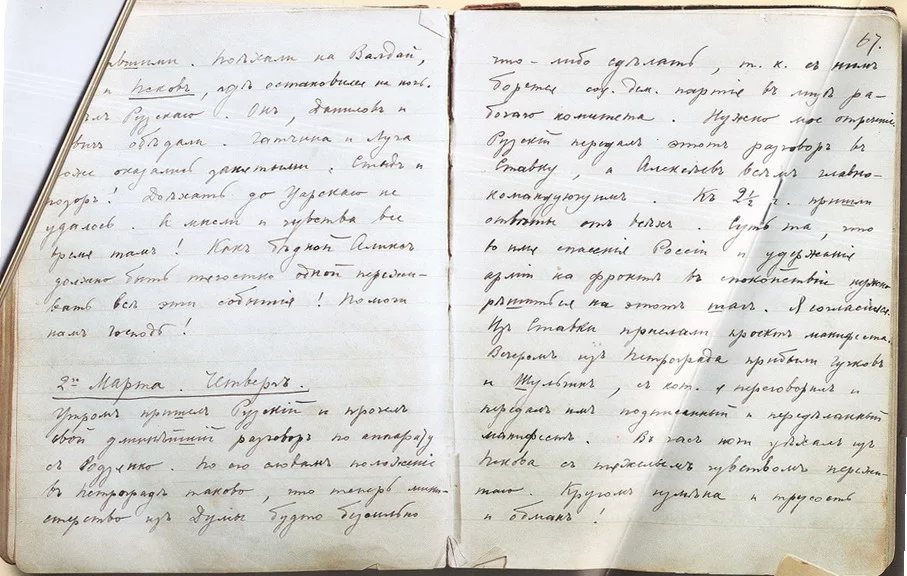 Поѣхали на Валдай,
и Псковъ, гдѣ остановился на ночь.
Рузскаго. Онъ, Даниловъ и
обѣдали. Гатчина и Луга
тоже оказались занятыми. Стыдъ и
позоръ! Доѣхать до Царскаго не
удалось. А мысли и чувства все
время тамъ! Какъ бѣдной Аликсъ
должно быть тягостно одной пережи-
вать всѣ эти событія! Помоги
намъ Господь!
2го Марта. Четвергъ.
Утромъ пришелъ Рузскій и прочелъ
свой длиннѣйшій разговоръ по аппарату
съ Родзянко. По его словамъ положеніе
въ Петроградѣ таково, что теперь мини-
стерство изъ Думы будто безсильно
67.
что-либо сдѣлать, т. к. съ нимъ
борется соц. дем. партія въ лицѣ ра-
бочаго комитета. Нужно мое отреченіе.
Рузскій передалъ этотъ разговоръ въ
Ставку, а Алексѣевъ всѣмъ главно-
командующимъ. Къ 2½ ч. пришли
отвѣты отъ всѣхъ. Суть та, что
во имя спасенія Россіи и удержанія
арміи на фронтѣ въ спокойствіи нужно
рѣшиться на этотъ шагъ. Я согласился.
Изъ Ставки прислали проектъ манифеста.
Вечеромъ изъ Петрограда прибыли Гучковъ
и Шульгинъ, съ кот. я переговорилъ и
передалъ имъ подписанный и передѣланный
манифестъ. Въ часъ ночи уѣхалъ изъ
Пскова съ тяжелымъ чувствомъ пережи-
таго. Кругомъ измѣна и трусость
и обманъ!